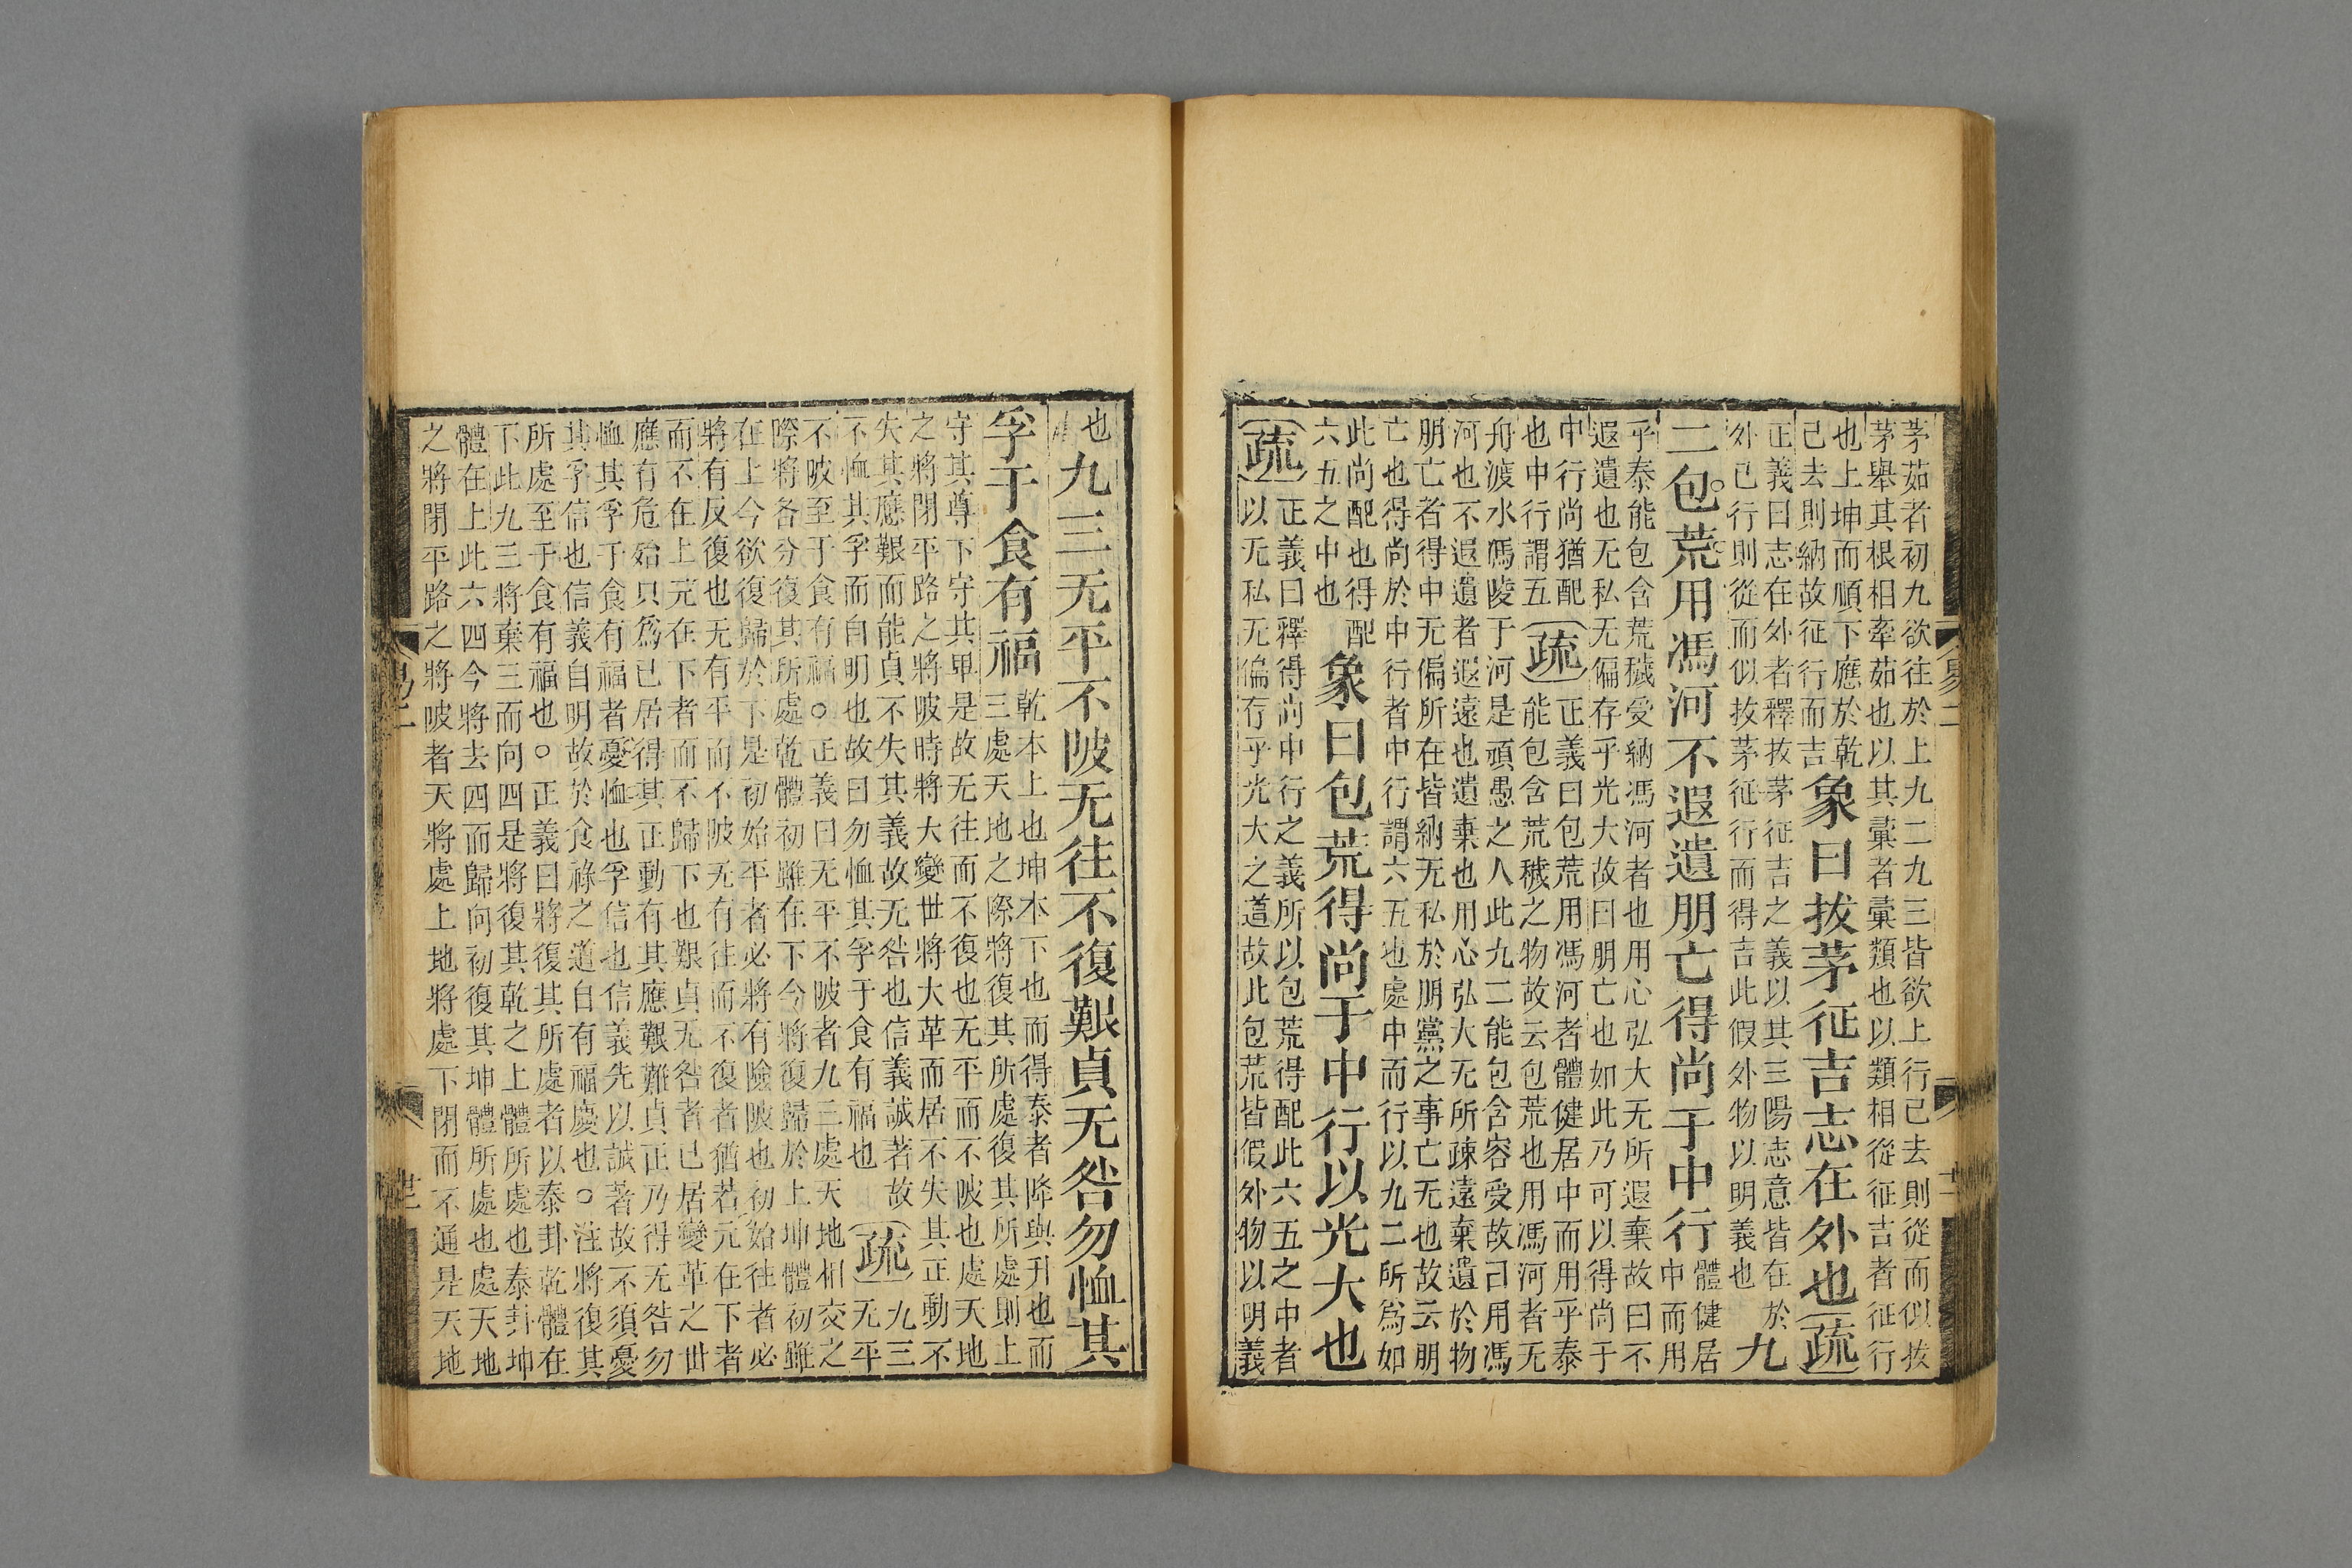 茅茹者初九欲往於上九二九三皆欲上行已去則從而似拔
茅舉其根相牽茹也以其彙者彙類也以類相從征吉者征行
也上坤而順下應於乾
己去則納故征行而吉
象曰拔茅征吉志在外也疏
正義曰志在外者釋拔茅征吉之義以其三陽志意皆在於
外已行則從而似拔茅征行而得吉此假外物以明義也
九
二包荒用馮河不遐遺朋亡得尚于中行
體健居
中而用
乎泰能包含荒穢受納馮河者也用心弘大无所遐棄故曰不
遐遺也无私无偏存乎光大故曰朋亡也如此乃可以得尚于
中行尚猶配
也中行謂五
疏
正義曰包荒用馮河者體健居中而用乎泰
能包含荒穢之物故云包荒也用馮河者无
舟渡水馮陵于河是頑愚之人此九二能包含容受故曰用馮
河也不遐遺者遐遠也遺棄也用心弘大无所疎遠棄遺於物
朋亡者得中无偏所在皆納无私於朋黨之事亡无也故云朋
亡也得尚於中行者中行謂六五也處中而行以九二所為如
此尚配也得配
六五之中也
象曰包荒得尚于中行以光大也
疏
正義曰釋得尚中行之義所以包荒得配此六五之中者
以无私无偏存乎光大之道故此包荒皆假外物以明義
也
九三无平不陂无往不復艱貞无咎勿恤其
孚于食有福
乾本上也坤本下也而得泰者降與升也而
三處天地之際將復其所處復其所處則上
守其尊下守其卑是故无往而不復也无平而不陂也處天地
之將閉平路之將陂時將大變世將大革而居不失其正動不
失其應艱而能貞不失其義故无咎也信義誠著故
不恤其孚而自明也故曰勿恤其孚于食有福也
疏
九三
无平
不陂至于食有福○正義曰无平不陂者九三處天地相交之
際將各分復其所處乾體初雖在下今將復歸於上坤體初雖
在上今欲復歸於下是初始平者必將有險陂也初始往者必
將有反復也无有平而不陂无有往而不復者猶若元在下者
而不在上元在下者而不歸下也艱貞无咎者已居變革之世
應有危殆只為已居得其正動有其應艱難貞正乃得无咎勿
恤其孚于食有福者憂恤也孚信也信義先以誠著故不須憂
其孚信也信義自明故於食祿之道自有福慶也○注將復其
所處至于食有福也○正義曰將復其所處者以泰卦乾體在
下此九三將棄三而向四是將復其乾之上體所處也泰卦坤
體在上此六四今將去四而歸向初復其坤體所處也處天地
之將閉平路之將陂者天將處上地將處下閉而不通是天地